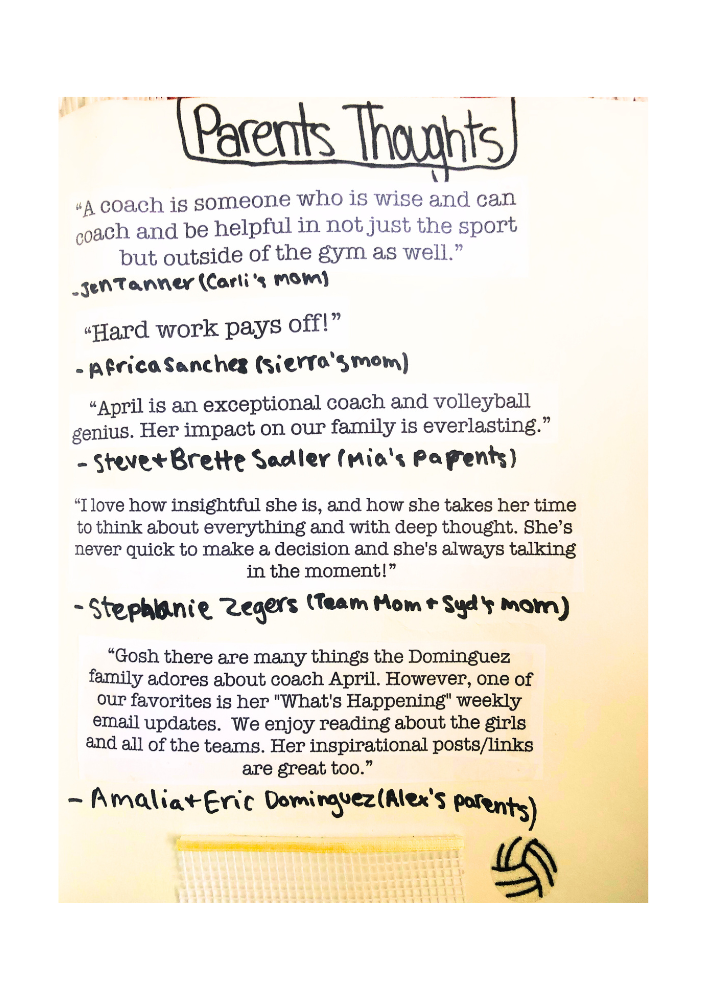 Parents Thoughts
“A coach is someone who is wise and can
coach and be helpful in not just the sport
but outside of the gym as well.”
-Jen Tanner (Carli's mom)
“Hard work pays off!”
- Africa Sanchez (Sierra's mom)
“April is an exceptional coach and volleyball
genius. Her impact on our family is everlasting.”
- Steve + Brette Sadler (Mia's Parents)
“I love how insightful she is, and how she takes her time
to think about everything and with deep thought. She's
never quick to make a decision and she's always talking
in the moment!”
- Stephanie Zegers (Team Mom + Syd's mom)
“Gosh there are many things the Dominguez
family adores about coach April. However, one of
our favorites is her "What's Happening" weekly
email updates. We enjoy reading about the girls
and all of the teams. Her inspirational posts/links
are great too.”
- Amalia + Eric Dominguez (Alex's parents)